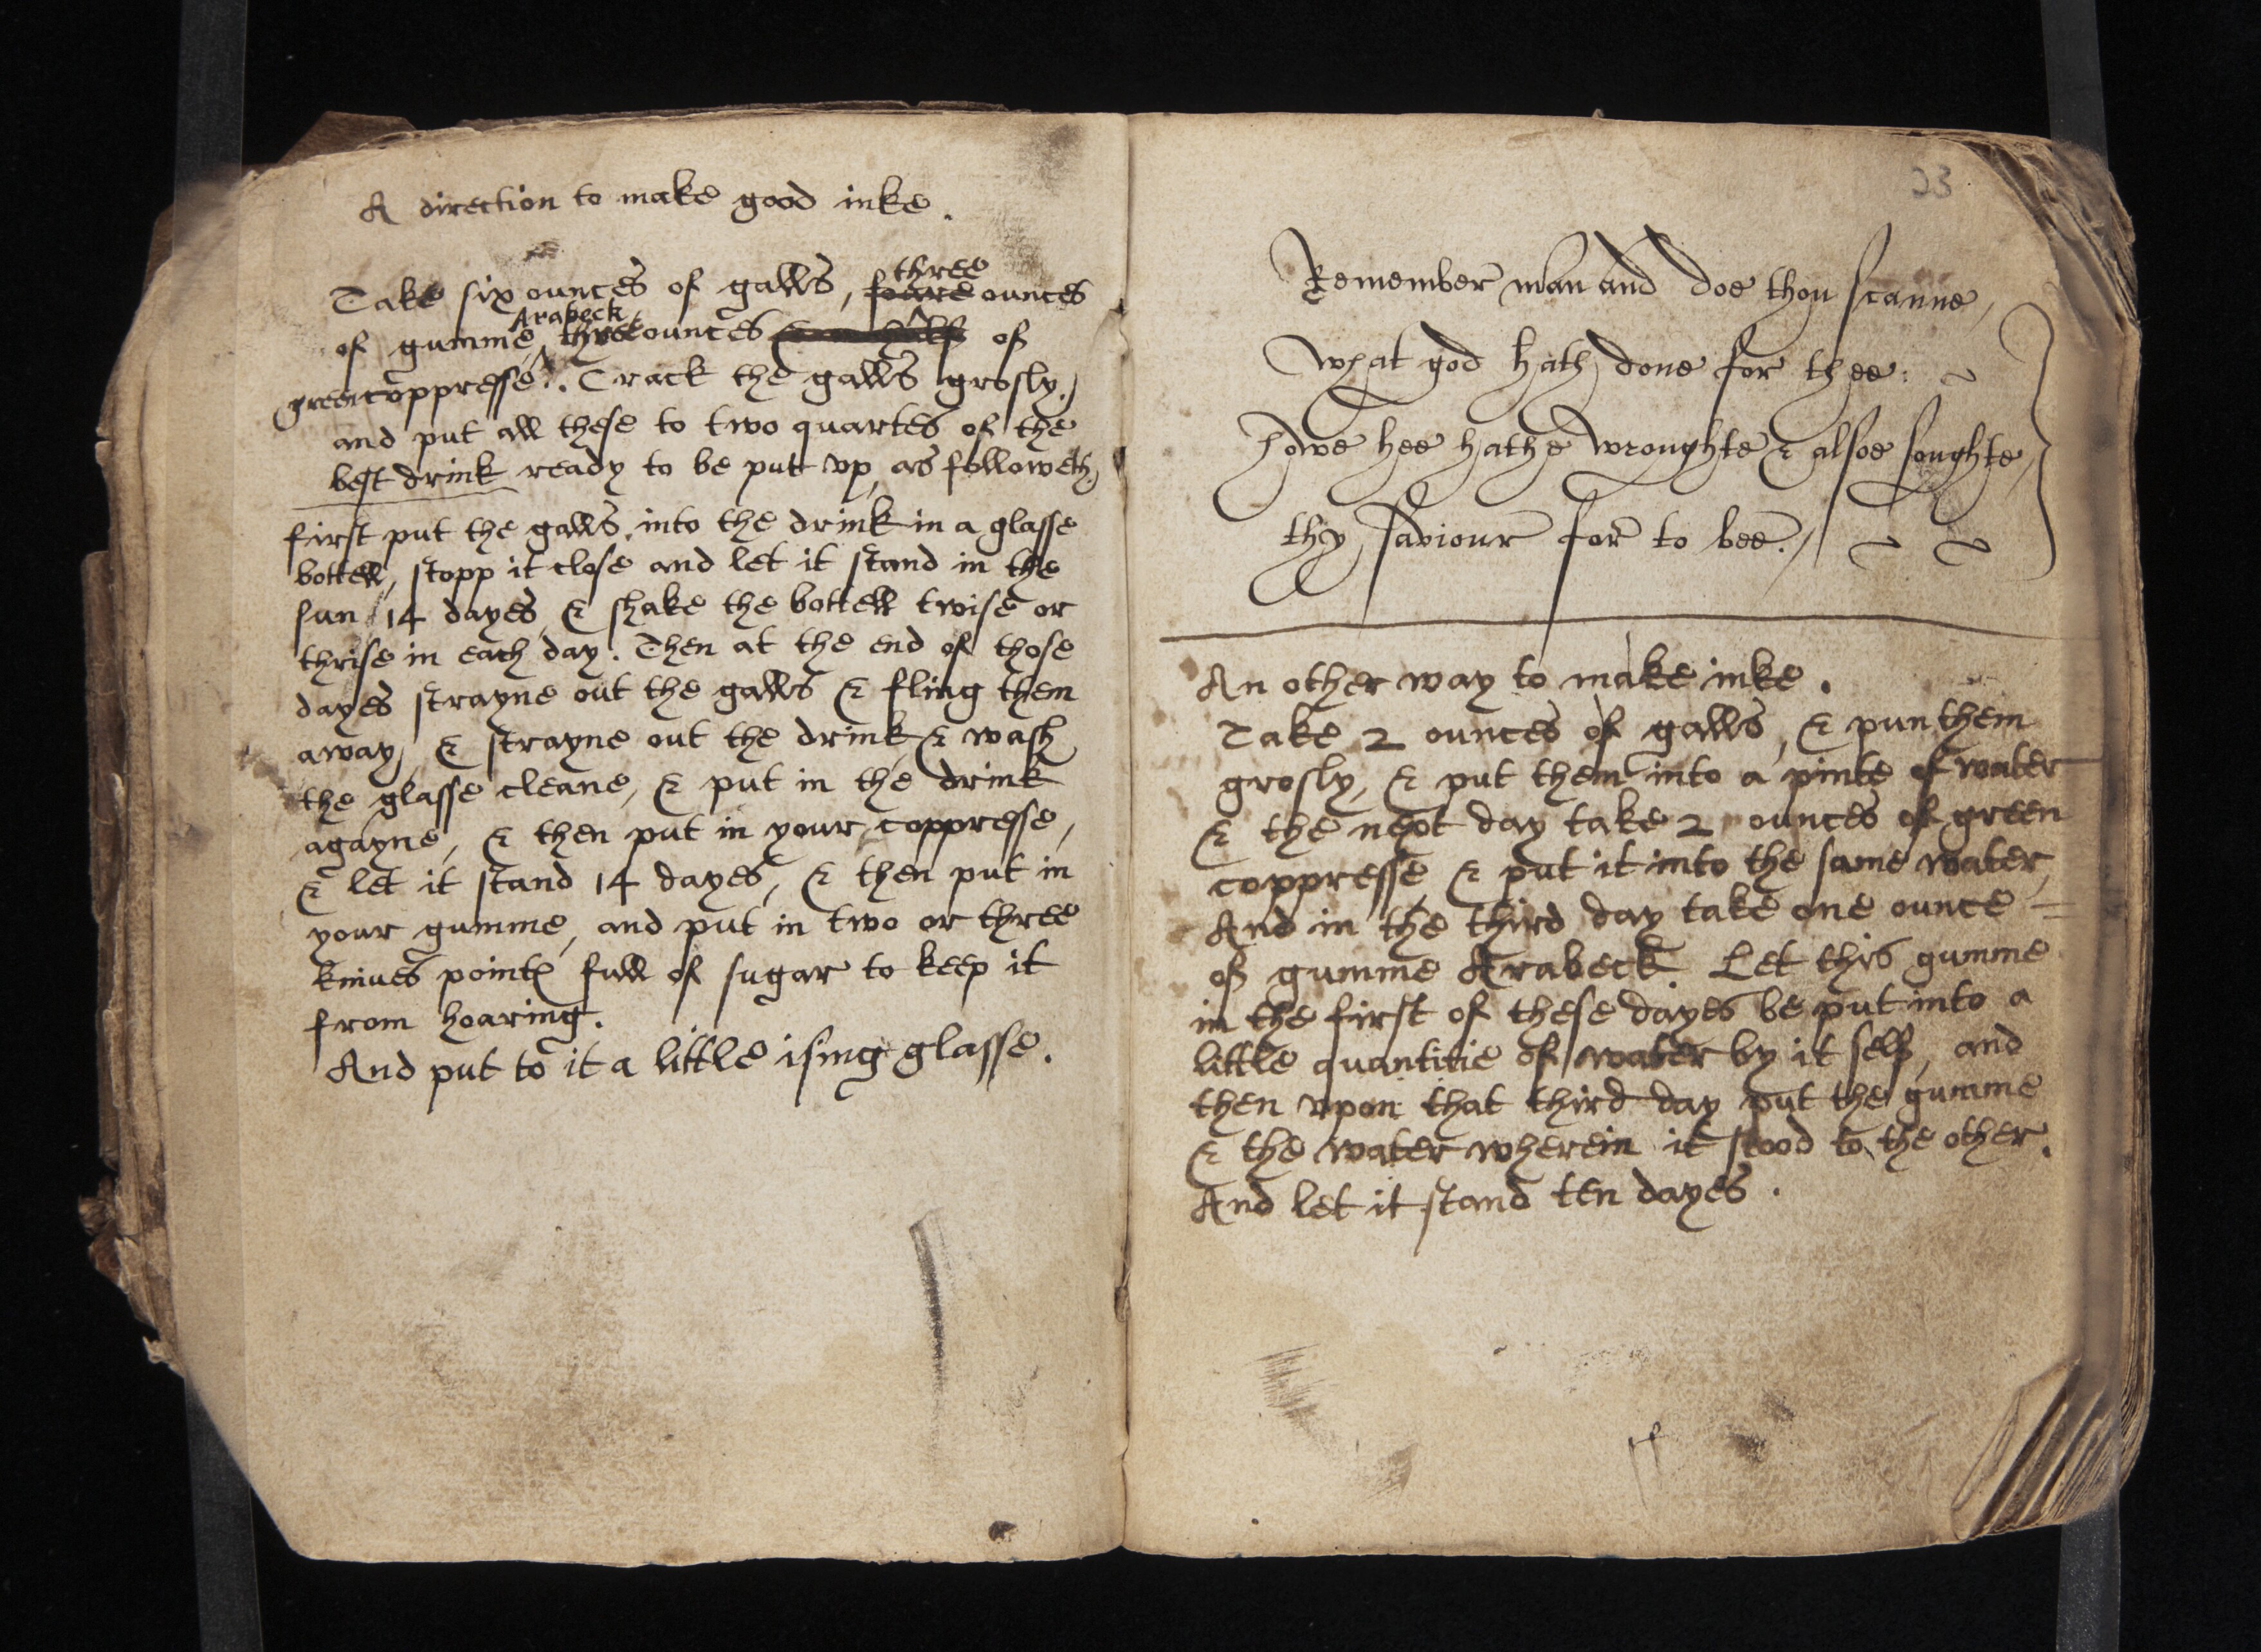 A direction to make good inke.
Take six ounces of galls, foure three ounces
of gumme Arabeck, three ounces of
green coppresse. Crack the galls grosly,
and put all these to two quartes of the
best drink ready to be putt vp, as followeth,
first put the galls into the drink in a glasse
bottell, stopp it close and let it stand in the
sun 14 dayes, & shake the bottell twise or
thrise in each day. Then at the end of those
dayes strayne out the galls & fling them
away, & strayne out the drink, & wash
the glasse cleane, & put in the drink
agayne, & then put in your coppresse,
& let it stand 14 dayes, & then put in
your gumme, and put in two or three
kniues pointes full of sugar to keep it
from hoaring.
And put to it a little ising glasse.
23
Remember man and doe thou scanne,
What god hath done for thee:
Howe hee hathe wroughte & alsoe soughte,
thy saviour for to bee.
An other way to make inke.
Take 2 ounces of galls, & pun them
grosly, & put them into a pinte of water
& the next day take 2 ounces of green
coppresse & put it into the same water,
And in the third day take one ounce
of gumme Arabeck. Let this gumme
in the first of these dayes be put into a
little quantitie of water by it self, and
then vpon that third day put the gumme
& the water wherein it stood to the other.
And let it stand ten dayes.